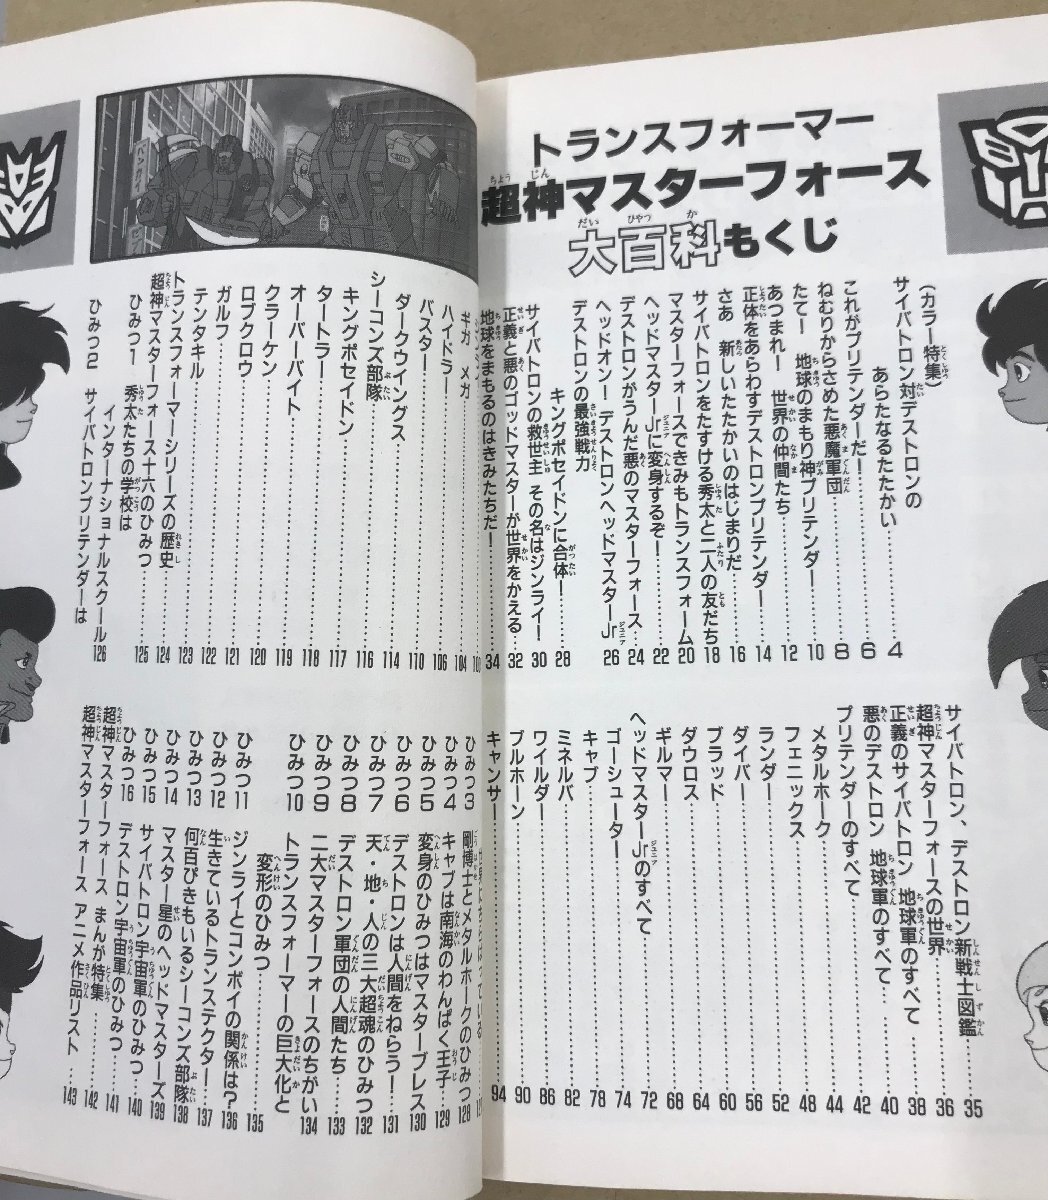 トランスフォーマー
超神マスターフォース
大百科もくじ
(カラー特集)
サイバトロン対デストロンの
あらたなるたたかい……4
これがプリテンダーだ!……6
ねむりからさめた悪魔軍団……8
たて! 地球のまもり神プリテンダー……10
あつまれ! 世界の仲間たち……12
正体をあらわすデストロンプリテンダー……14
さあ 新しいたたかいのはじまりだ……16
サイバトロンをたすける秀太と二人の友だち 18
マスターフォースできみもトランスフォーム 20
ヘッドマスターJrに変身するぞ!……22
デストロンがうんだ悪のマスターフォース……24
ヘッドオン! デストロンヘッドマスターJr 26
デストロンの最強戦力
キングポセイドンに合体!……28
サイバトロンの救世主 その名はジンライ! 30
正義と悪のゴッドマスターが世界をかえる……32
地球をまもるのはきみたちだ!……34
サイバトロン、デストロン新戦士図鑑……35
超神マスターフォースの世界……36
正義のサイバトロン 地球軍のすべて……38
悪のデストロン 地球軍のすべて……40
プリテンダーのすべて……42
メタルホーク……44
フェニックス……48
ランダー……52
ダイバー……56
ブラッド……60
ダウロス……64
ギルマー……68
ヘッドマスターJrのすべて……72
ゴーシューター……74
キャブ……78
ミネルバ……82
ワイルダー……86
ブルホーン……90
キャンサー……94
ギガ メガ……104
ハイドラー……106
バスター……110
ダークウイングス……114
シーコンズ部隊……116
キングポセイドン……117
タートラー……118
オーバーバイト……119
クラーケン……120
ロブクロウ……121
ガルフ……122
テンタキル……123
トランスフォーマーシリーズの歴史……124
超神マスターフォース十六のひみつ……125
ひみつ1 秀太たちの学校は
インターナショナルスクール 126
ひみつ2 サイバトロンプリテンダーは
ひみつ3 剛博士とメタルホークのひみつ 128
ひみつ4 キャブは南海のわんぱく王子……129
ひみつ5 変身のひみつはマスターブレス 130
ひみつ6 デストロンは人間をねらう!……131
ひみつ7 天・地・人の三大超魂のひみつ 132
ひみつ8 デストロン軍団の人間たち……133
ひみつ9 二大マスターフォースのちがい 134
ひみつ10 トランスフォーマーの巨大化と
変形のひみつ……135
ひみつ11 ジンライとコンボイの関係は? 136
ひみつ12 生きているトランステクター……137
ひみつ13 何百ぴきもいるシーコンズ部隊 138
ひみつ14 マスター星のヘッドマスターズ 139
ひみつ15 サイバトロン宇宙軍のひみつ……140
ひみつ16 デストロン宇宙軍のひみつ……141
超神マスターフォース まんが特集……142
超神マスターフォース アニメ作品リスト……143